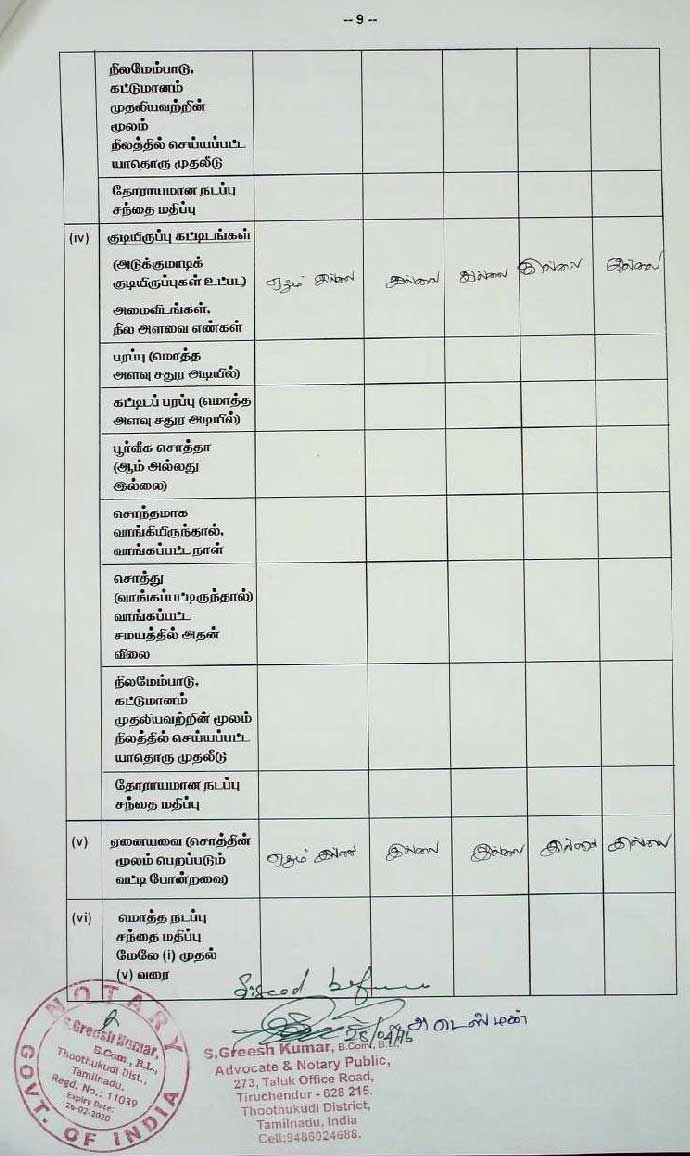 -- 9 --
நிலமேம்பாடு,
கட்டுமானம்
முதலியவற்றின்
மூலம்
நிலத்தில் செய்யப்பட்ட
யாதொரு முதலீடு
தோராயமான நடப்பு
சந்தை மதிப்பு
(iv) குடியிருப்பு கட்டிடங்கள்
(அடுக்குமாடிக்
குடியிருப்புகள் உட்பட) ஏதும் இல்லை இல்லை இல்லை இல்லை இல்லை
அமைவிடங்கள்,
நில அளவை எண்கள்
பரப்பு (மொத்த
அளவு சதுர அடியில்)
கட்டிடப் பரப்பு (மொத்த
அளவு சதுர அடியில்)
பூர்வீக சொத்தா
(ஆம் அல்லது
இல்லை)
சொந்தமாக
வாங்கியிருந்தால்,
வாங்கப்பட்ட நாள்
சொத்து
(வாங்கப்பட்டிருந்தால்)
வாங்கப்பட்ட
சமயத்தில் அதன்
விலை
நிலமேம்பாடு,
கட்டுமானம்
முதலியவற்றின் மூலம்
நிலத்தில் செய்யப்பட்ட
யாதொரு முதலீடு
தோராயமான நடப்பு
சந்தை மதிப்பு
(v) ஏனையவை (சொத்தின்
மூலம் பெறப்படும் ஏதும் இல்லை இல்லை இல்லை இல்லை இல்லை
வட்டி போன்றவை)
(vi) மொத்த நடப்பு
சந்தை மதிப்பு
மேலே (i) முதல்
(v) வரை
Signed before
NOTARY
S.Greesh Kumar,
B.Com., B.L.,
Thoothukudi Dist.,
Tamilnadu.
Regd. No.: 11039
Expiry Date:
26-02-2020
GOVT. OF INDIA
S.Greesh Kumar, B.Com., B.L.,
Advocate & Notary Public,
273, Taluk Office Road,
Tiruchendur - 628 215.
Thoothukudi District,
Tamilnadu, India
Cell:9486024688.